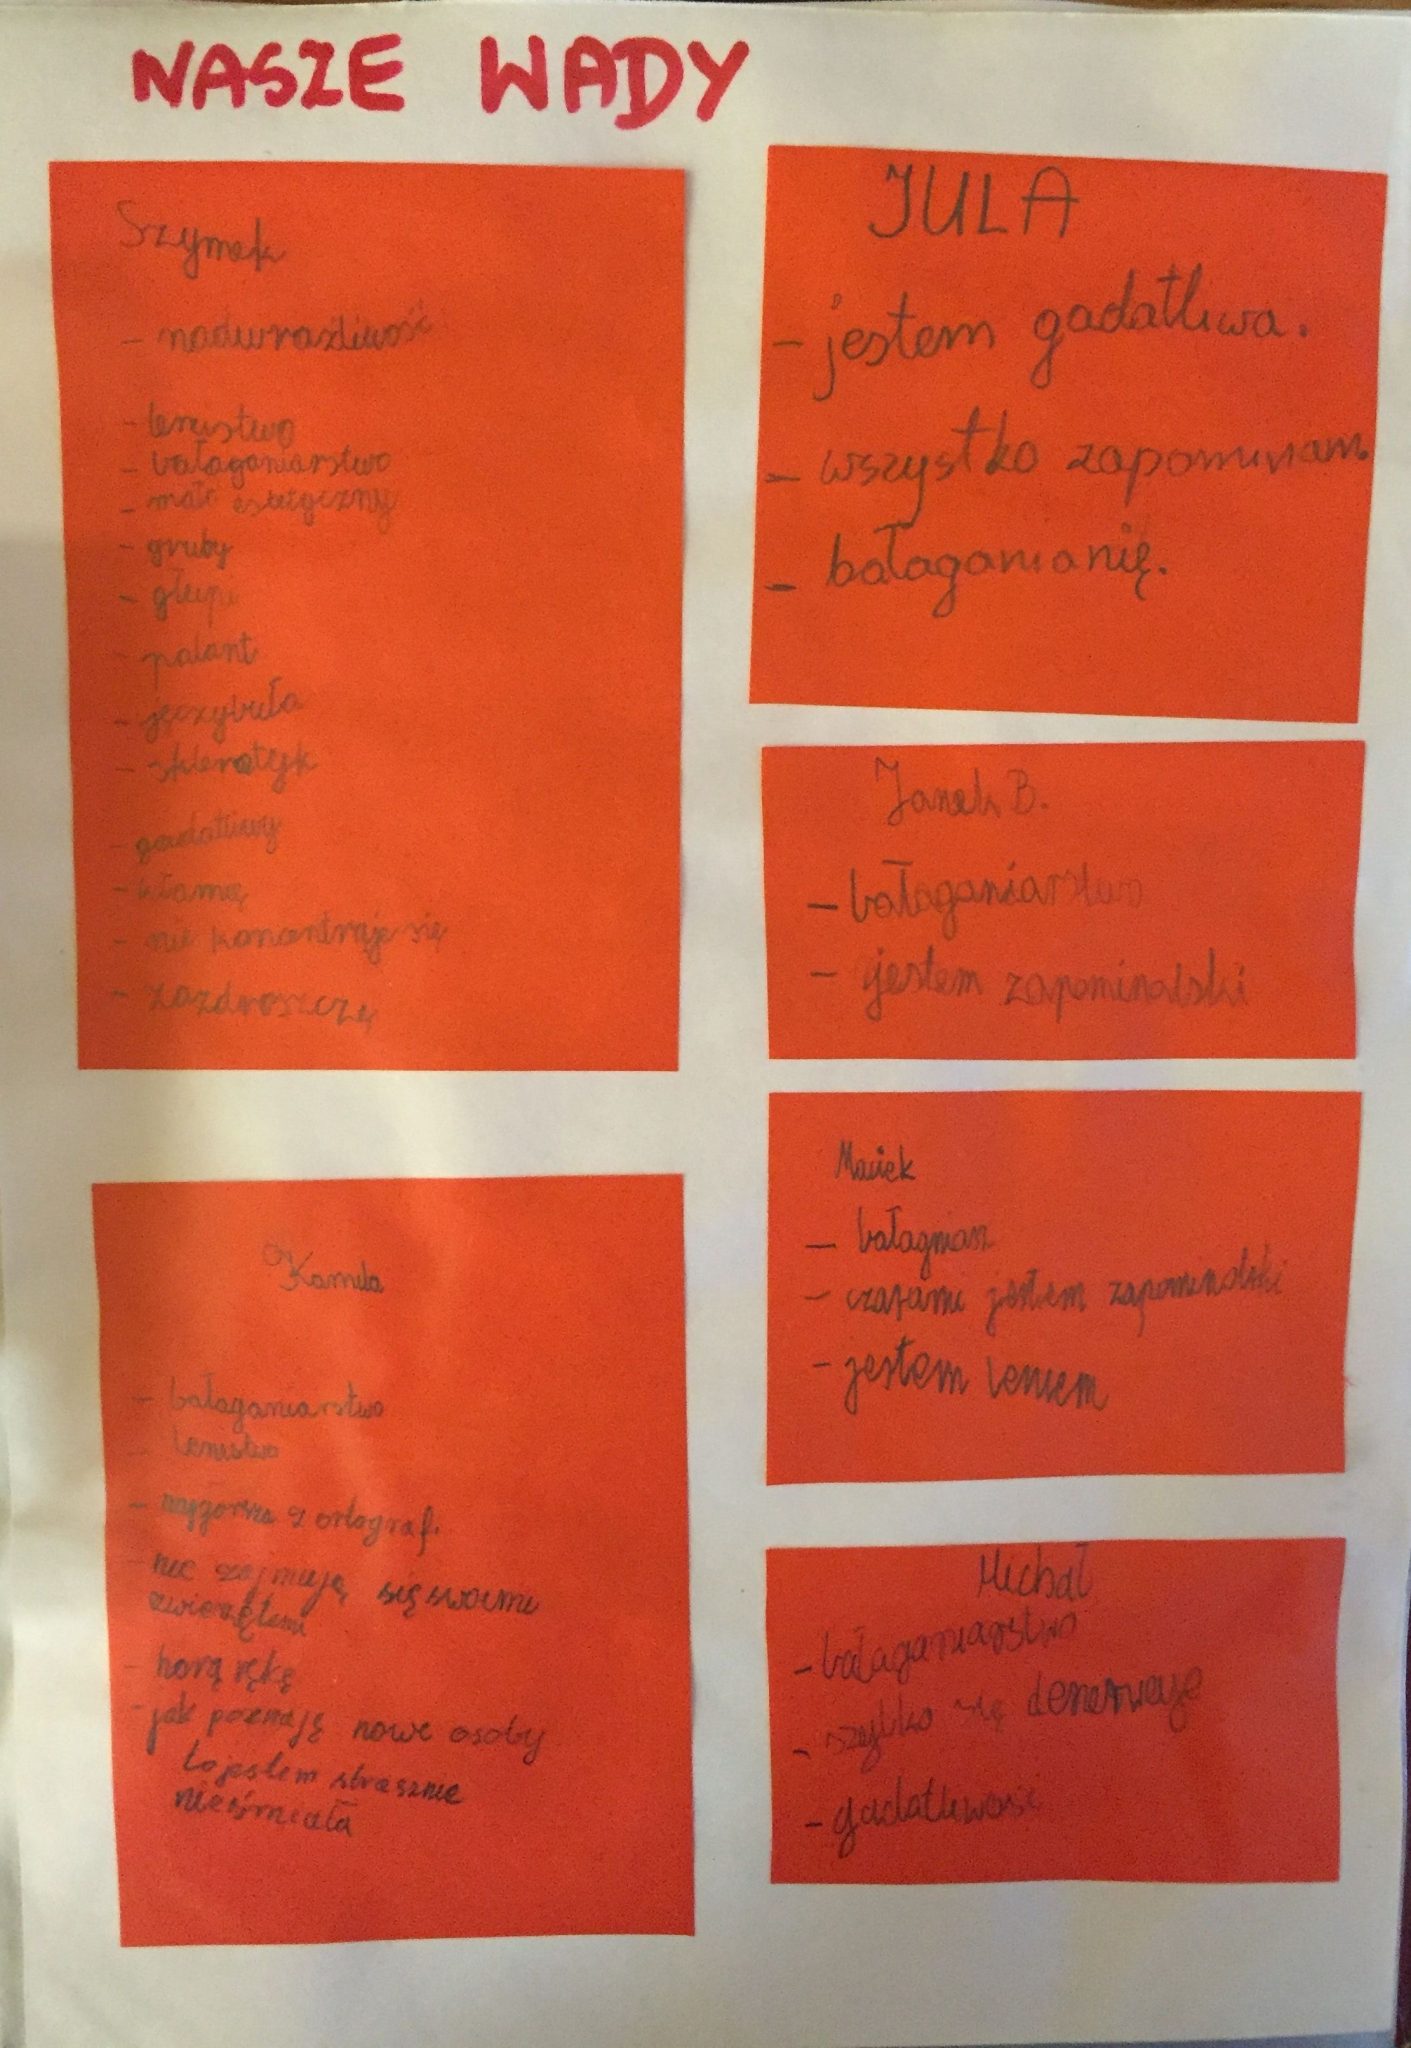 NASZE WADY
Szymek
- nadwrażliwość
- lenistwo
- bałaganiarstwo
- mało
- gruby
- głupi
- palant
- jęczybuła
- sklerotyk
- gadatliwy
- kłamię
- nie koncentruje się
- zazdroszczę
Kamila
- bałaganiarstwo
- lenistwo
- najgorsza z ortograf.
- nie zajmuję się swoimi
zwierzętemi
- rękę
- jak poznaję nowe osoby
to jestem strasznie
nieśmiała
JULA
- jestem gadatliwa.
- wszystko zapominam
- bałaganianię.
Janek B.
- bałaganiarstwo
- jestem zapominalski
Maciek
- bałagniasz
- czasami jestem zapominalski
- jestem leniem
Michał
- bałaganiarstwo
- szybko się denerwuje
- gadatliwość